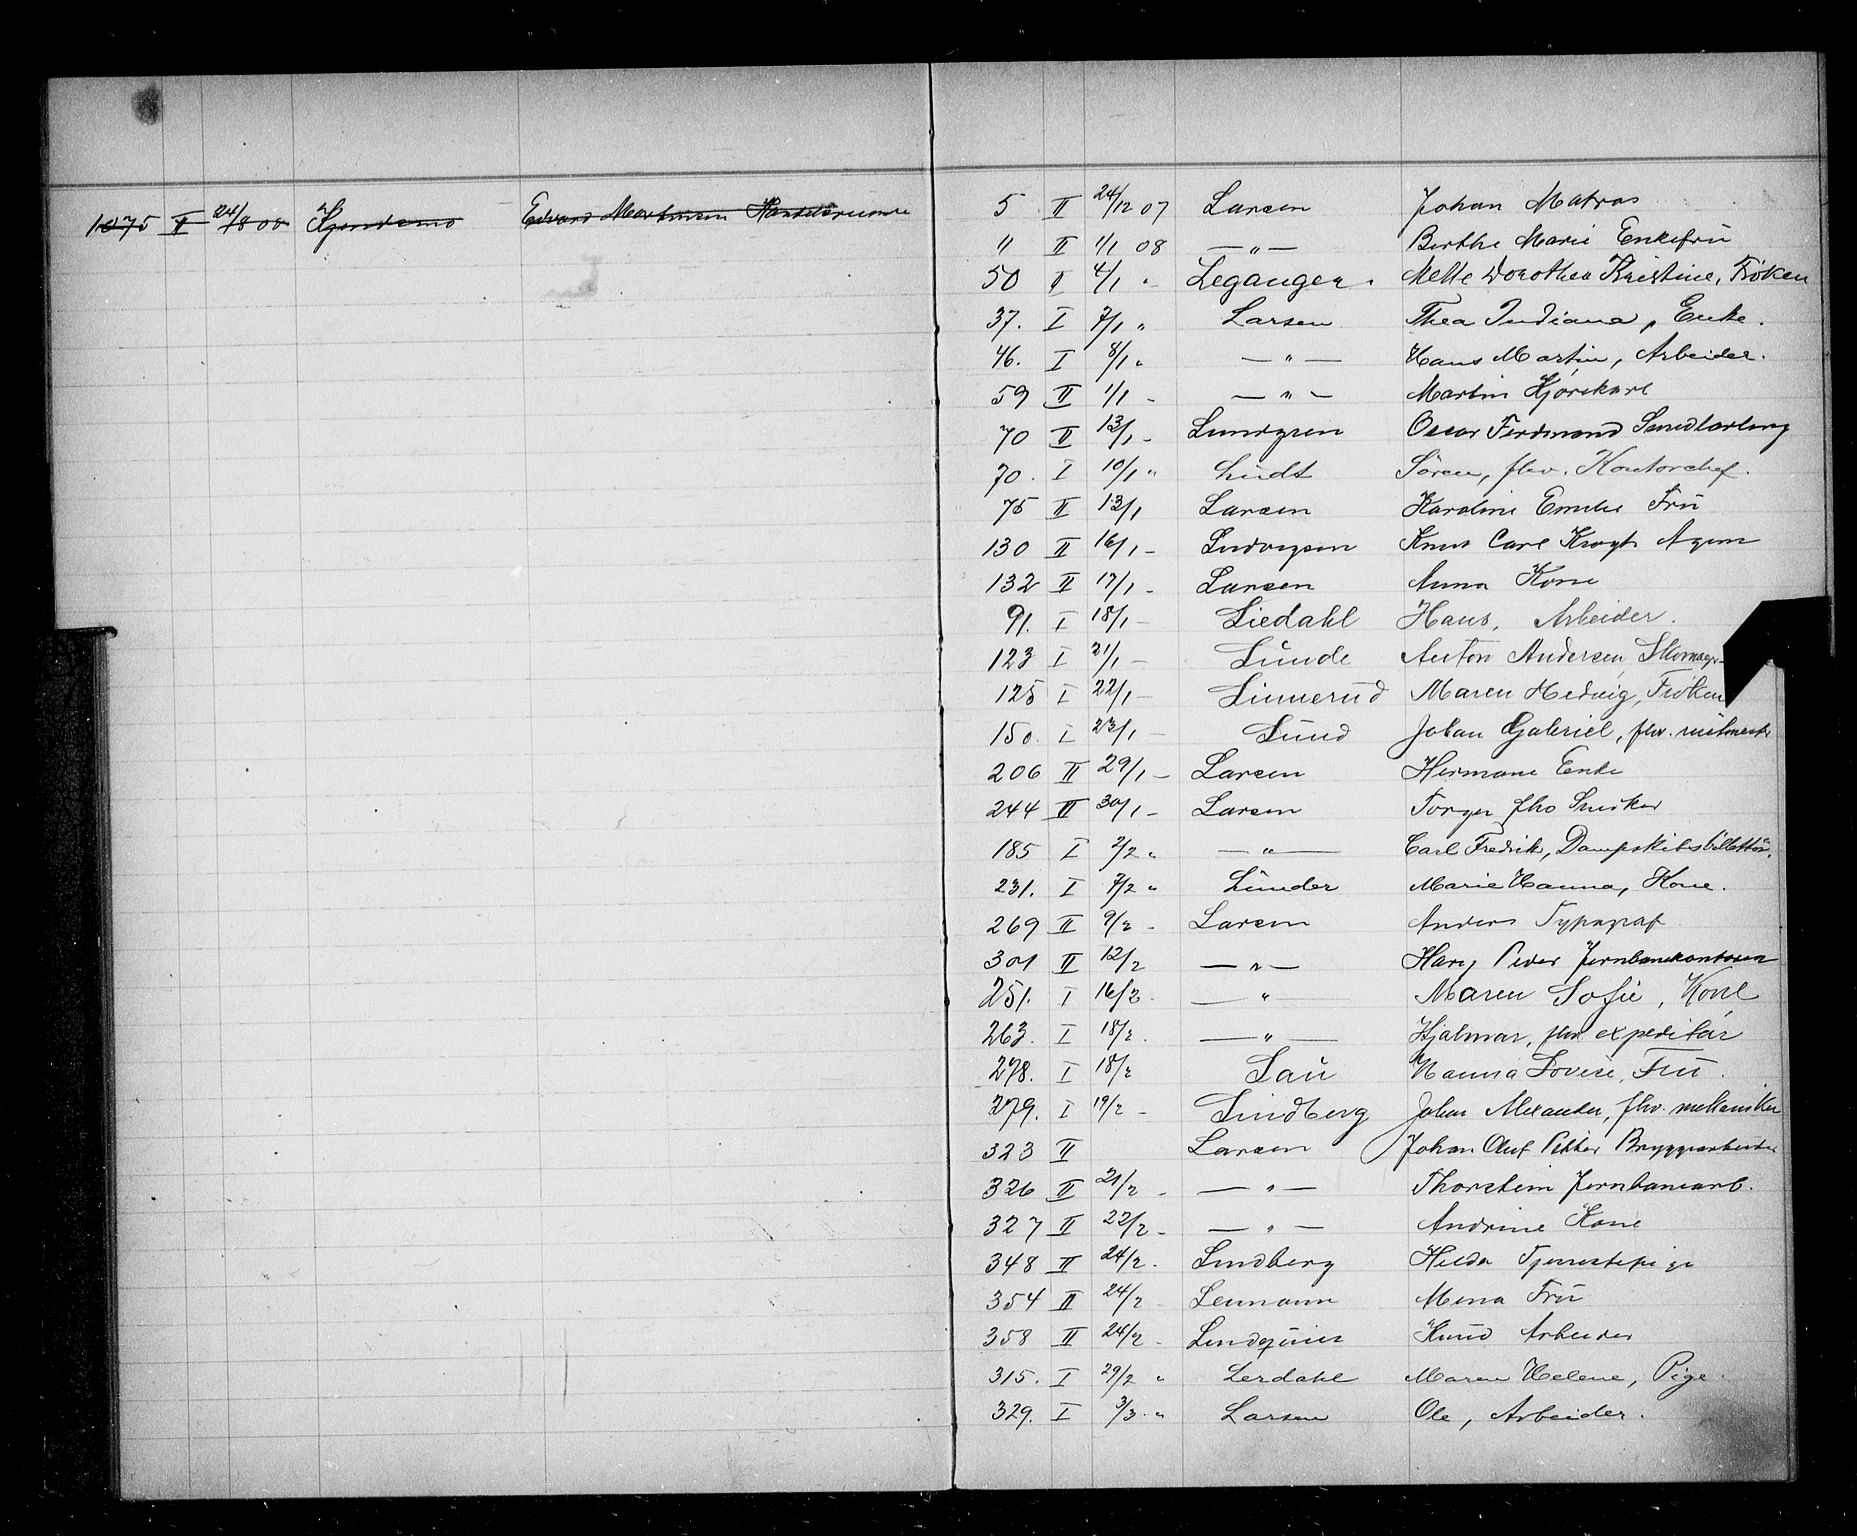 1075 II 24/8 00 Kjendsmo Edvard Martinsen Handelsreisende
5 II 24/12 07 Larsen Johan Matros
11 II 1/1 08 — " — Berthe Marie Enkefrü
50 II 4/1 " Leganger. Mette Dorothea Kristine, Frøken
37. I 7/1 " Larsen Thea Indiana, Enke.
46. I 8/1 " — " — Hans Martin, Arbeider.
59 II 1/1 - — " — Martin Kjørekarl
70 II 13/1 - Lundgren Oscar Ferdinand
70. I 10/1 " Lindt Sören, fhv. Kontorchef.
75 II 13/1 Larsen Karoline Emilie Frü
130 II 16/1 - Ludvigsen Knut Carl Krogh Agent
132 II 17/1 - Larsen Anna Kone
91. I 18/1 - Liedahl Hans, Arbeider.
123 I 21/1 - Lünde Anton Andersen, Skomager
125 I 22/1 - Linnerud Maren Hedvig, Frøken
150. I 23/1 - Lünd Johan Gabriel, fhv.
206 II 29/1 - Larsen Hermane Enke
244 II 30/1 - Larsen Torger fhv Snidker
185 I 2/2 " — " — Carl Fredrik, Dampskibsbillettör.
231. I 7/2 " Lünder Marie Hanna, Kone.
269 II 9/2 - Larsen Anders Typograf
301 II 12/2 — " — Peder Jernbanekontoren
251. I 16/2. — " — Maren Sofie, Kone
263. I 18/2. — " — Hjalmar, fhv. expeditör
278. I 18/2 Lau Hanna Lovise, Frü.
279. I 19/2 - Lindberg Johan Alexander, fhv. mekaniker
323 II Larsen Johan Oluf Petter Bryggearbeider
326 II 21/2 - — " — Thorstein Jernbanearb.
327 II 22/2 - — " — Andrine Kone
348 II 24/2. Lindberg Hilda Tjenestepige
354 II 24/2 Leumann Mina Frü
358 II 24/2 - Lindqüist Knud Arbeider
315. I 29/2 " Lerdahl Maren Helene, Pige.
329. I 3/3. " Larsen Ole, Arbeider.